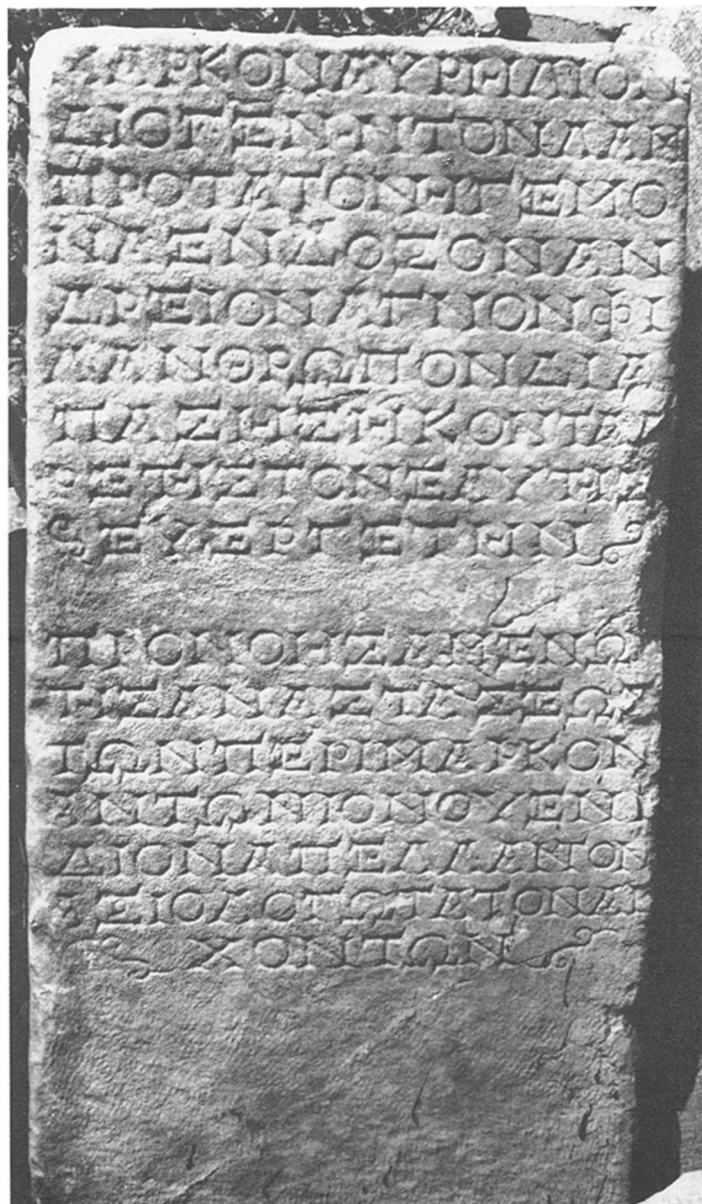 ΜΑΡΚΟΝΑΥΡΗΛΙΟΝ
ΔΙΟΓΕΝΗΝΤΟΝΛΑΜ
ΠΡΟΤΑΤΟΝΗΓΕΜΟ
ΝΑΕΝΔΟΞΟΝΑΝ
ΔΡΕΙΟΝΑΓΝΟΝΦΙ
ΛΑΝΘΡΩΠΟΝΔΙΑ
ΠΑΣΗΣΗΚΟΝΤΑΑ
ΡΕΤΗΣΤΟΝΕΑΥΤΗΣ
ΕΥΕΡΓΕΤΗΝ
ΠΡΟΝΟΗΣΑΜΕΝΩΝ
ΤΗΣΑΝΑΣΤΑΣΕΩΣ
ΤΩΝΠΕΡΙΜΑΡΚΟΝ
ΑΝΤΩΝΙΟΝΟΥΕΝΙ
ΔΙΟΝΑΠΕΛΛΑΝΤΟΝ
ΑΞΙΟΛΟΓΩΤΑΤΟΝΑΡ
ΧΟΝΤΩΝ